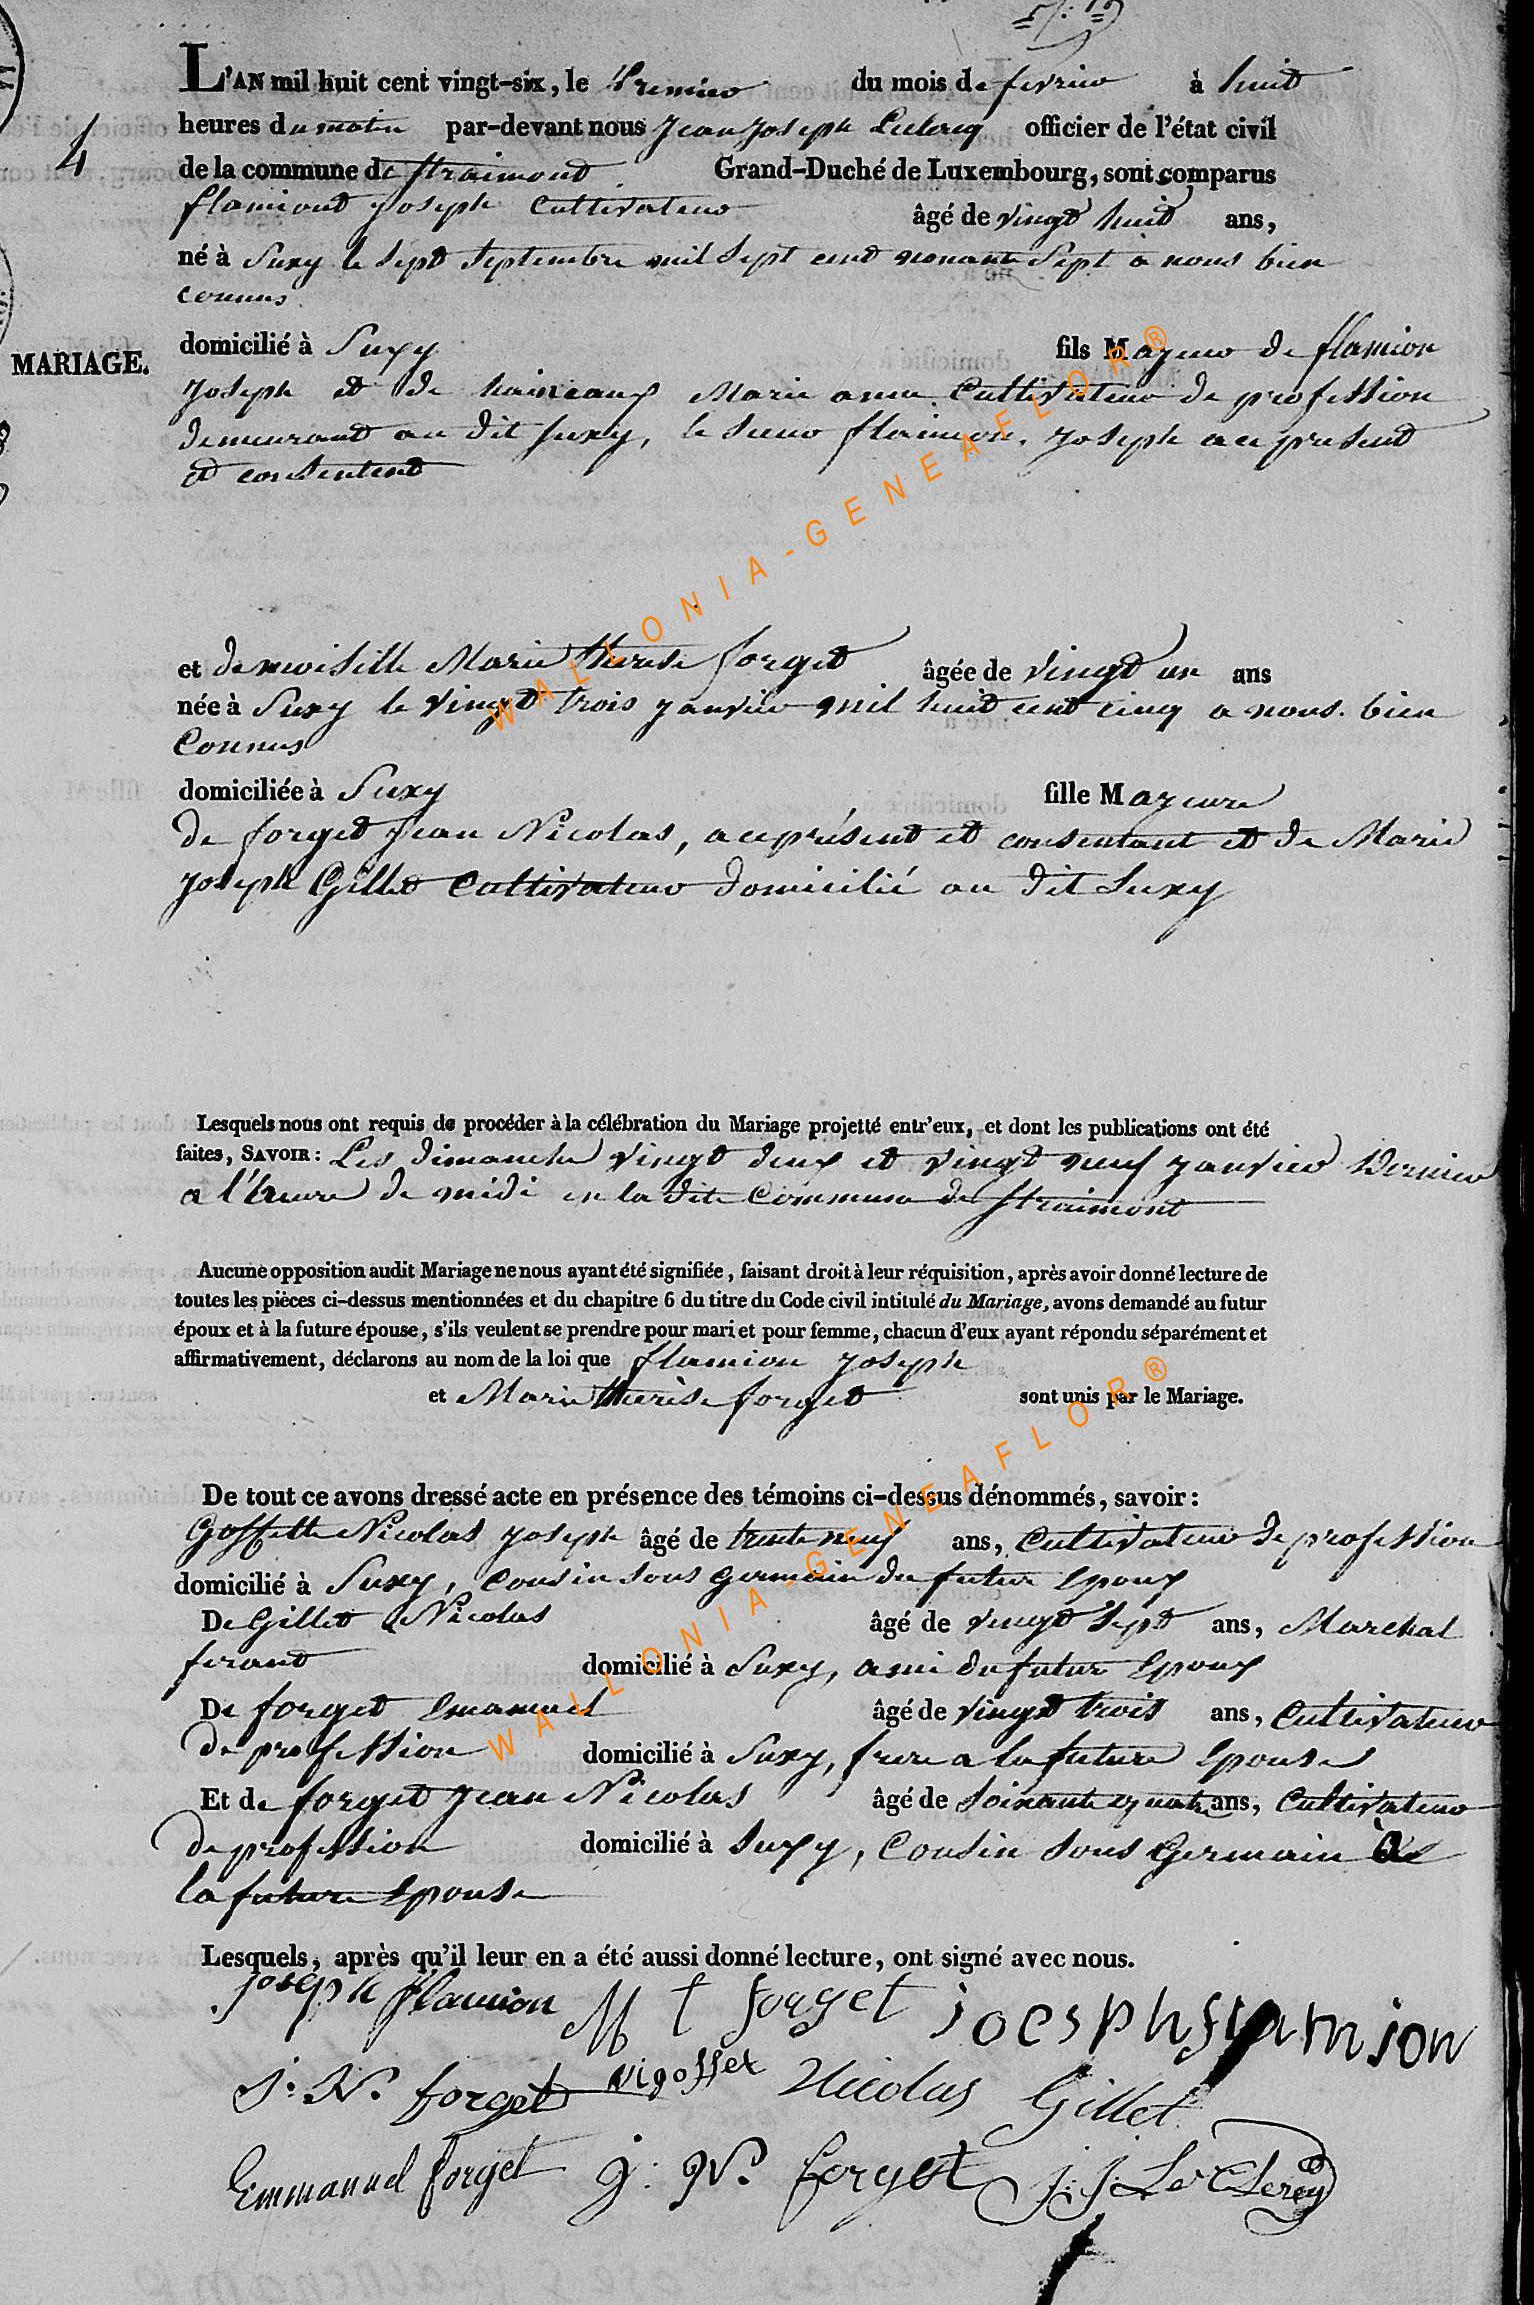 L'AN mil huit cent vingt-six, le Premier du mois de fevrier à huit
heures du matin par-devant nous Jean Joseph Leclercq officier de l'état civil
4
de la commune de straimont Grand-Duché de Luxembourg, sont comparus
flamiont Joseph Cultivateur âgé de vingt huit ans,
né à Suxy le Sept Septembre mil Sept cent nonante Sept a nous bien
connus
MARIAGE.
domicilié à Suxy fils Majeur de flamion
Joseph et de haineaux Marie anne Cultivateur de profession
demeurant au dit Suxy, le Sieur flamion Joseph ace present
et consentent
et demoiselle Marie therese forget âgée de vingt un ans
née à Suxy le vingt trois janvier mil huit cent cinq a nous bien
Connus
domiciliée à Suxy fille Majeure
de forget Jean Nicolas, ace présent et consentant et de Marie
Joseph Gillet Cultivateur domicilié au dit Suxy
Lesquels nous ont requis de procéder à la célébration du Mariage projetté entr'eux, et dont les publications ont été
faites, SAVOIR : Les dimanche vingt deux et vingt neuf janvier Dernier
a l'heure de midi en la dite Commune de straimont
Aucune opposition audit Mariage ne nous ayant été signifiée, faisant droit à leur réquisition, après avoir donné lecture de
toutes les pièces ci-dessus mentionnées et du chapitre 6 du titre du Code civil intitulé du Mariage, avons demandé au futur
époux et à la future épouse, s'ils veulent se prendre pour mari et pour femme, chacun d'eux ayant répondu séparément et
affirmativement, déclarons au nom de la loi que flamion Joseph
et Marie therese forget sont unis par le Mariage.
De tout ce avons dressé acte en présence des témoins ci-dessus dénommés, savoir :
Goffette Nicolas Joseph âgé de trente neuf ans, Cultivateur de profession
domicilié à Suxy, Cousin sous germain du futur Epoux
De Gillet Nicolas âgé de vingt Sept ans, Marchal
ferant domicilié à Suxy, ami du futur Epoux
De forget Emanuel âgé de vingt trois ans, Cultivateur
de profession domicilié à Suxy, frere a la future Epouse
Et de forget Jean Nicolas âgé de Soixante quatre ans, Cultivateur
de profession domicilié à Suxy, Cousin Sous Germain de
la future Epouse
Lesquels, après qu'il leur en a été aussi donné lecture, ont signé avec nous.
joseph flamion M t forget joesph flamnion
J. N. forget nigoffet Nicolas Gillet
Emmanuel forget J. N. forget J. J. Leclercq
WALLONIA-GENEAFLOR®
WALLONIA-GENEAFLOR®